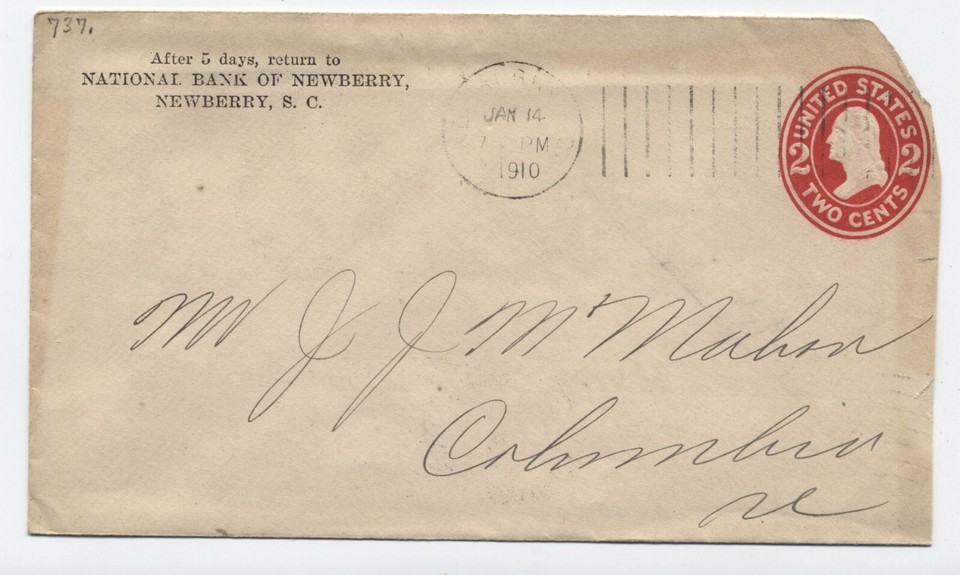 737.
After 5 days, return to
NATIONAL BANK OF NEWBERRY,
NEWBERRY, S. C.
JAN 14
PM
1910
UNITED STATES
2 2
TWO CENTS
Mr J J McMahon
Columbia
SC